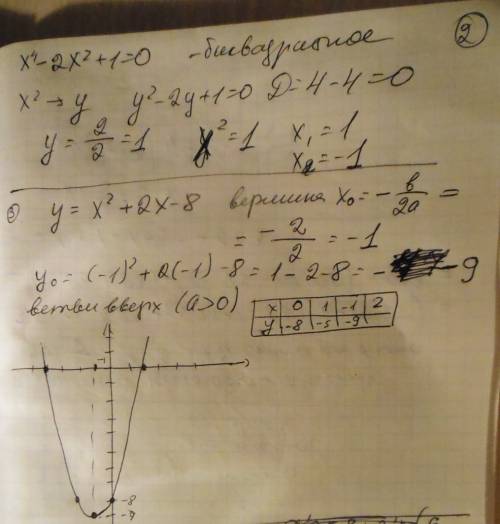 2
x⁴-2x²+1=0 -биквадратное
x² → y y²-2y+1=0 D=4-4=0
y = 2/2 = 1 x²=1 x₁=1
x₂=-1
3) y = x²+2x-8 вершина x₀ = -в/2а =
= -2/2 = -1
y₀ = (-1)²+2(-1)-8 = 1-2-8 = -9
ветви вверх (а>0)
x 0 1 -1 2
y -8 -5 -9
-1
-8
-9